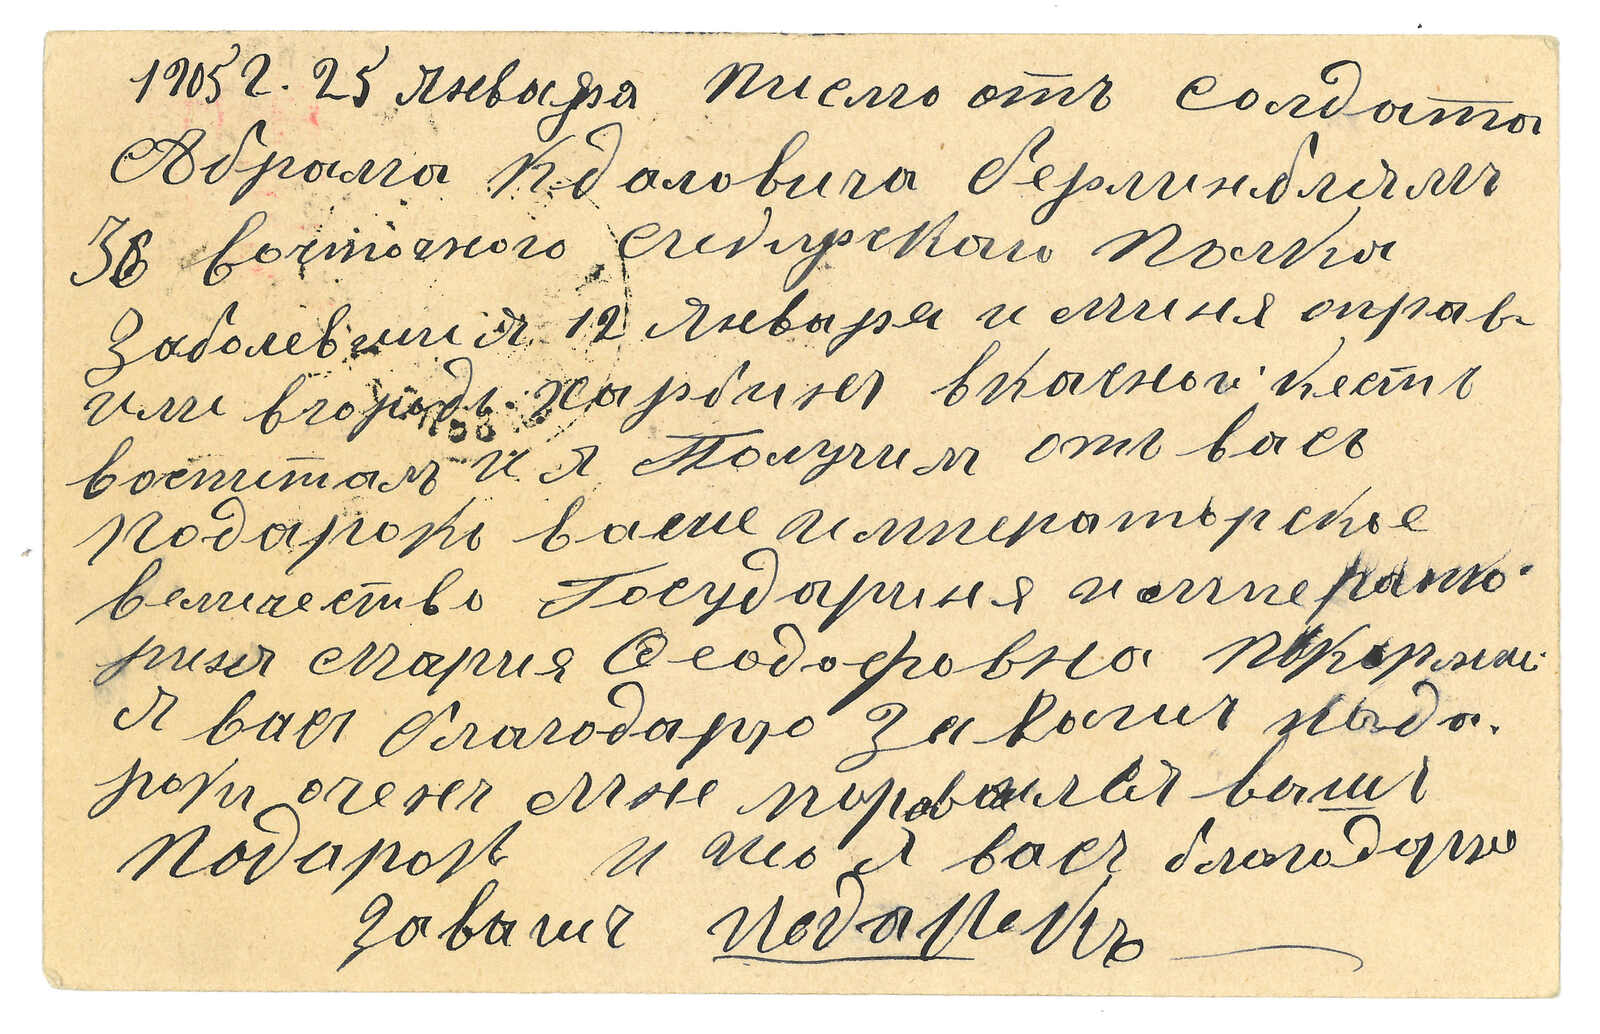 1905 г. 25 января писмо отъ солдата
Абрама Кдаловича берлинблямъ
36 восточного сибирскаго полка
Заболевшия 12 января и миня справ-
или вгородъ харбинъ в качной кестъ
воспиталъ и я Получил отъ васъ
подарокъ ваше императорское
величество Государиня императо-
рины Мария Феодоровна покорнеи
я васъ благодарю За вашъ пода-
роки очень мне норавился вашъ
подарокъ и што я васъ благодарю
За вашъ подарокъ